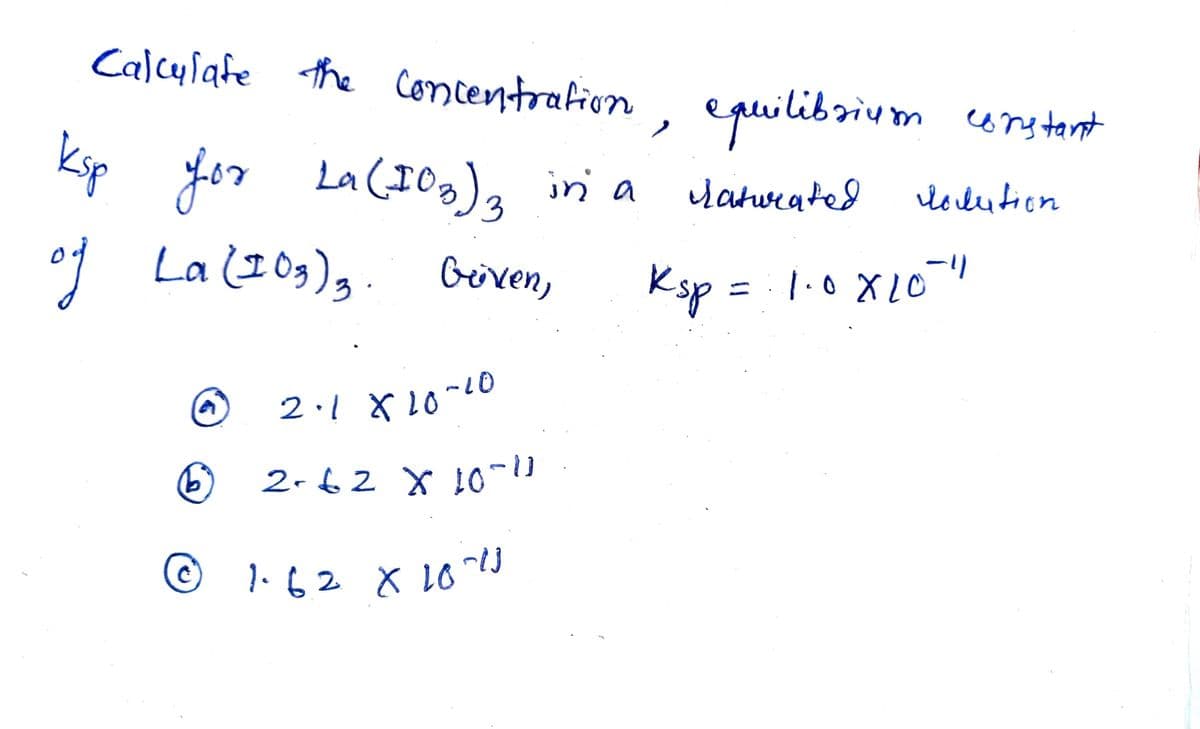 Calculate the Concentration, equilibrium constant
Ksp for La(IO3)3 in a saturated solution
of La(IO3)3. Given, Ksp = 1.0 X10^-11
(a) 2.1 X 10^-10
(b) 2.62 X 10^-11
(c) 1.62 X 10^-11